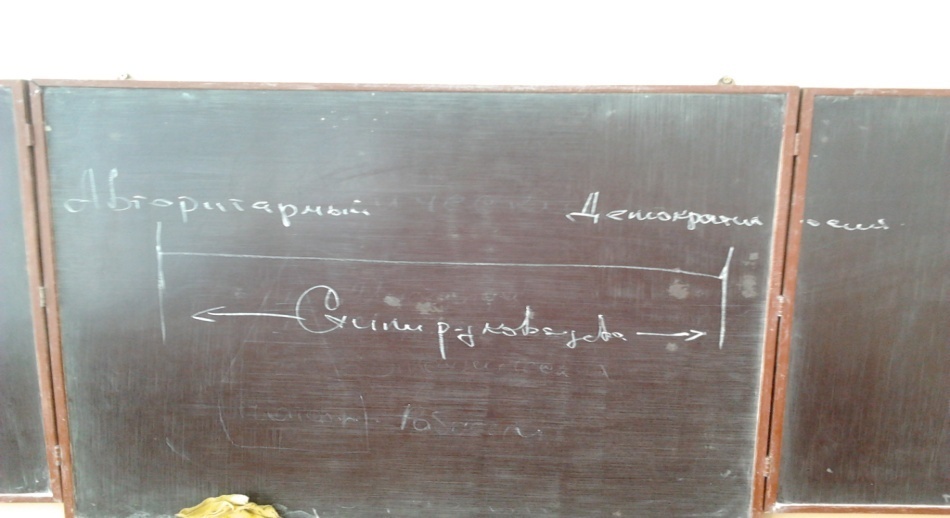 Авторитарный Демократический
Стили руководства